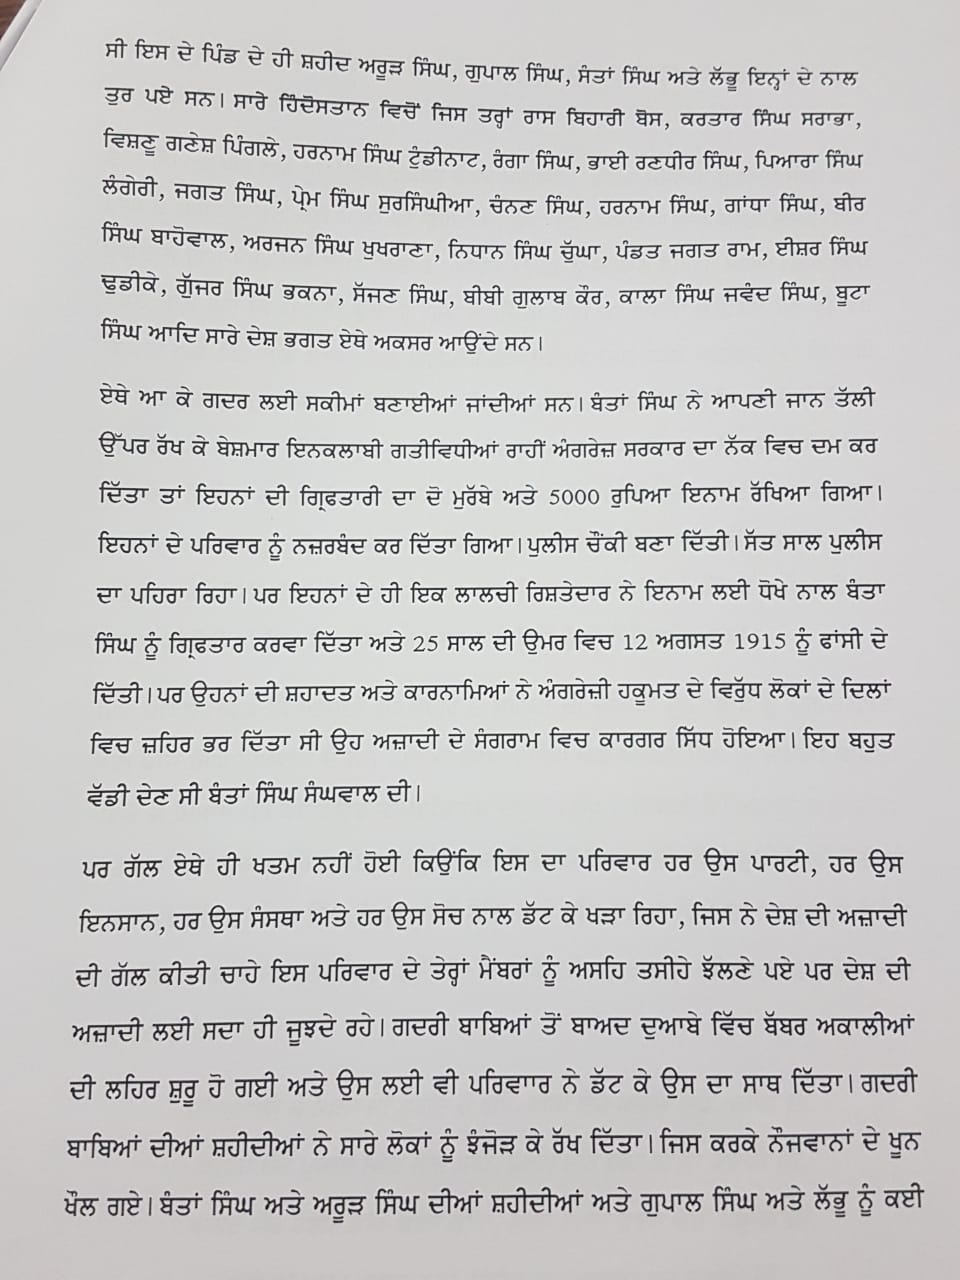 ਸੀ ਇਸ ਦੇ ਪਿੰਡ ਦੇ ਹੀ ਸ਼ਹੀਦ ਅਰੂੜ ਸਿੰਘ, ਗੁਪਾਲ ਸਿੰਘ, ਸੰਤਾਂ ਸਿੰਘ ਅਤੇ ਲੱਭੂ ਇਨ੍ਹਾਂ ਦੇ ਨਾਲ
ਤੁਰ ਪਏ ਸਨ। ਸਾਰੇ ਹਿੰਦੋਸਤਾਨ ਵਿਚੋਂ ਜਿਸ ਤਰ੍ਹਾਂ ਰਾਸ ਬਿਹਾਰੀ ਬੋਸ, ਕਰਤਾਰ ਸਿੰਘ ਸਰਾਭਾ,
ਵਿਸ਼ਣੂ ਗਣੇਸ਼ ਪਿੰਗਲੇ, ਹਰਨਾਮ ਸਿੰਘ ਟੁੰਡੀਨਾਟ, ਰੰਗਾ ਸਿੰਘ, ਭਾਈ ਰਣਧੀਰ ਸਿੰਘ, ਪਿਆਰਾ ਸਿੰਘ
ਲੰਗੇਰੀ, ਜਗਤ ਸਿੰਘ, ਪ੍ਰੇਮ ਸਿੰਘ ਸੁਰਸਿੰਘੀਆ, ਚੰਨਣ ਸਿੰਘ, ਹਰਨਾਮ ਸਿੰਘ, ਗਾਂਧਾ ਸਿੰਘ, ਬੀਰ
ਸਿੰਘ ਬਾਹੋਵਾਲ, ਅਰਜਨ ਸਿੰਘ ਖੁਖਰਾਣਾ, ਨਿਧਾਨ ਸਿੰਘ ਚੁੱਘਾ, ਪੰਡਤ ਜਗਤ ਰਾਮ, ਈਸ਼ਰ ਸਿੰਘ
ਢੁਡੀਕੇ, ਗੁੱਜਰ ਸਿੰਘ ਭਕਨਾ, ਸੱਜਣ ਸਿੰਘ, ਬੀਬੀ ਗੁਲਾਬ ਕੌਰ, ਕਾਲਾ ਸਿੰਘ ਜਵੰਦ ਸਿੰਘ, ਬੂਟਾ
ਸਿੰਘ ਆਦਿ ਸਾਰੇ ਦੇਸ਼ ਭਗਤ ਏਥੇ ਅਕਸਰ ਆਉਂਦੇ ਸਨ।
ਏਥੇ ਆ ਕੇ ਗਦਰ ਲਈ ਸਕੀਮਾਂ ਬਣਾਈਆਂ ਜਾਂਦੀਆਂ ਸਨ। ਬੰਤਾਂ ਸਿੰਘ ਨੇ ਆਪਣੀ ਜਾਨ ਤੱਲੀ
ਉੱਪਰ ਰੱਖ ਕੇ ਬੇਸ਼ਮਾਰ ਇਨਕਲਾਬੀ ਗਤੀਵਿਧੀਆਂ ਰਾਹੀਂ ਅੰਗਰੇਜ਼ ਸਰਕਾਰ ਦਾ ਨੱਕ ਵਿਚ ਦਮ ਕਰ
ਦਿੱਤਾ ਤਾਂ ਇਹਨਾਂ ਦੀ ਗ੍ਰਿਫਤਾਰੀ ਦਾ ਦੋ ਮੁਰੱਬੇ ਅਤੇ 5000 ਰੁਪਿਆ ਇਨਾਮ ਰੱਖਿਆ ਗਿਆ।
ਇਹਨਾਂ ਦੇ ਪਰਿਵਾਰ ਨੂੰ ਨਜ਼ਰਬੰਦ ਕਰ ਦਿੱਤਾ ਗਿਆ। ਪੁਲੀਸ ਚੌਂਕੀ ਬਣਾ ਦਿੱਤੀ। ਸੱਤ ਸਾਲ ਪੁਲੀਸ
ਦਾ ਪਹਿਰਾ ਰਿਹਾ। ਪਰ ਇਹਨਾਂ ਦੇ ਹੀ ਇਕ ਲਾਲਚੀ ਰਿਸ਼ਤੇਦਾਰ ਨੇ ਇਨਾਮ ਲਈ ਧੋਖੇ ਨਾਲ ਬੰਤਾ
ਸਿੰਘ ਨੂੰ ਗ੍ਰਿਫਤਾਰ ਕਰਵਾ ਦਿੱਤਾ ਅਤੇ 25 ਸਾਲ ਦੀ ਉਮਰ ਵਿਚ 12 ਅਗਸਤ 1915 ਨੂੰ ਫਾਂਸੀ ਦੇ
ਦਿੱਤੀ। ਪਰ ਉਹਨਾਂ ਦੀ ਸ਼ਹਾਦਤ ਅਤੇ ਕਾਰਨਾਮਿਆਂ ਨੇ ਅੰਗਰੇਜ਼ੀ ਹਕੂਮਤ ਦੇ ਵਿਰੁੱਧ ਲੋਕਾਂ ਦੇ ਦਿਲਾਂ
ਵਿਚ ਜ਼ਹਿਰ ਭਰ ਦਿੱਤਾ ਸੀ ਉਹ ਅਜ਼ਾਦੀ ਦੇ ਸੰਗਰਾਮ ਵਿਚ ਕਾਰਗਰ ਸਿੱਧ ਹੋਇਆ। ਇਹ ਬਹੁਤ
ਵੱਡੀ ਦੇਣ ਸੀ ਬੰਤਾਂ ਸਿੰਘ ਸੰਘਵਾਲ ਦੀ।
ਪਰ ਗੱਲ ਏਥੇ ਹੀ ਖਤਮ ਨਹੀਂ ਹੋਈ ਕਿਉਂਕਿ ਇਸ ਦਾ ਪਰਿਵਾਰ ਹਰ ਉਸ ਪਾਰਟੀ, ਹਰ ਉਸ
ਇਨਸਾਨ, ਹਰ ਉਸ ਸੰਸਥਾ ਅਤੇ ਹਰ ਉਸ ਸੋਚ ਨਾਲ ਡੱਟ ਕੇ ਖੜਾ ਰਿਹਾ, ਜਿਸ ਨੇ ਦੇਸ਼ ਦੀ ਅਜ਼ਾਦੀ
ਦੀ ਗੱਲ ਕੀਤੀ ਚਾਹੇ ਇਸ ਪਰਿਵਾਰ ਦੇ ਤੇਰ੍ਹਾਂ ਮੈਂਬਰਾਂ ਨੂੰ ਅਸਹਿ ਤਸੀਹੇ ਝੱਲਣੇ ਪਏ ਪਰ ਦੇਸ਼ ਦੀ
ਅਜ਼ਾਦੀ ਲਈ ਸਦਾ ਹੀ ਜੂਝਦੇ ਰਹੇ। ਗਦਰੀ ਬਾਬਿਆਂ ਤੋਂ ਬਾਅਦ ਦੁਆਬੇ ਵਿੱਚ ਬੱਬਰ ਅਕਾਲੀਆਂ
ਦੀ ਲਹਿਰ ਸ਼ੁਰੂ ਹੋ ਗਈ ਅਤੇ ਉਸ ਲਈ ਵੀ ਪਰਿਵਾਾਰ ਨੇ ਡੱਟ ਕੇ ਉਸ ਦਾ ਸਾਥ ਦਿੱਤਾ। ਗਦਰੀ
ਬਾਬਿਆਂ ਦੀਆਂ ਸ਼ਹੀਦੀਆਂ ਨੇ ਸਾਰੇ ਲੋਕਾਂ ਨੂੰ ਝੰਜੋੜ ਕੇ ਰੱਖ ਦਿੱਤਾ। ਜਿਸ ਕਰਕੇ ਨੌਜਵਾਨਾਂ ਦੇ ਖੂਨ
ਖੌਲ ਗਏ। ਬੰਤਾਂ ਸਿੰਘ ਅਤੇ ਅਰੂੜ ਸਿੰਘ ਦੀਆਂ ਸ਼ਹੀਦੀਆਂ ਅਤੇ ਗੁਪਾਲ ਸਿੰਘ ਅਤੇ ਲੱਭੂ ਨੂੰ ਕਈ